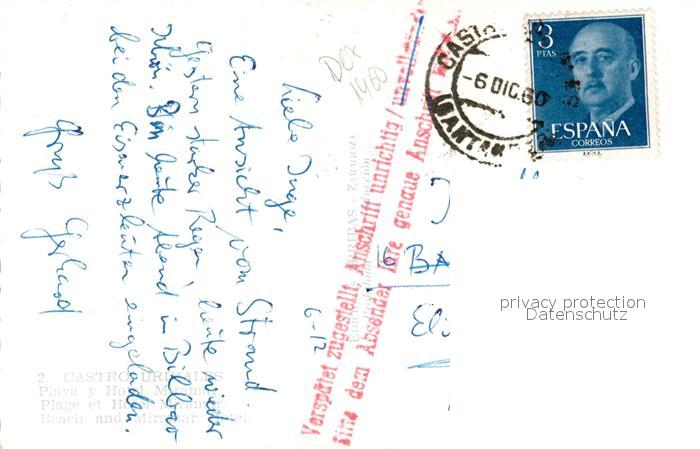 Liebe Inge,
Eine Ansicht vom Strand.
gestern starker Regen, heute wieder
schön. Bin heute Abend in Bilbao
bei den Eisenerzleuten eingeladen.
Gruß Gerhard
6-12
Dez
1960
Verspätet zugestellt, Anschrift unrichtig/
Bitte dem Absender Ihre genaue Anschrift
CASTRO
-6 DIC.60
(SANTAN
3
PTAS
ESPAÑA
CORREOS
F.N.M.T.
2 CASTRO URDIALES
Playa y Hotel Miramar
Plage et Hotel Miramar
Beach and Miramar Hotel.
ZARAGOZA
privacy protection
Datenschutz